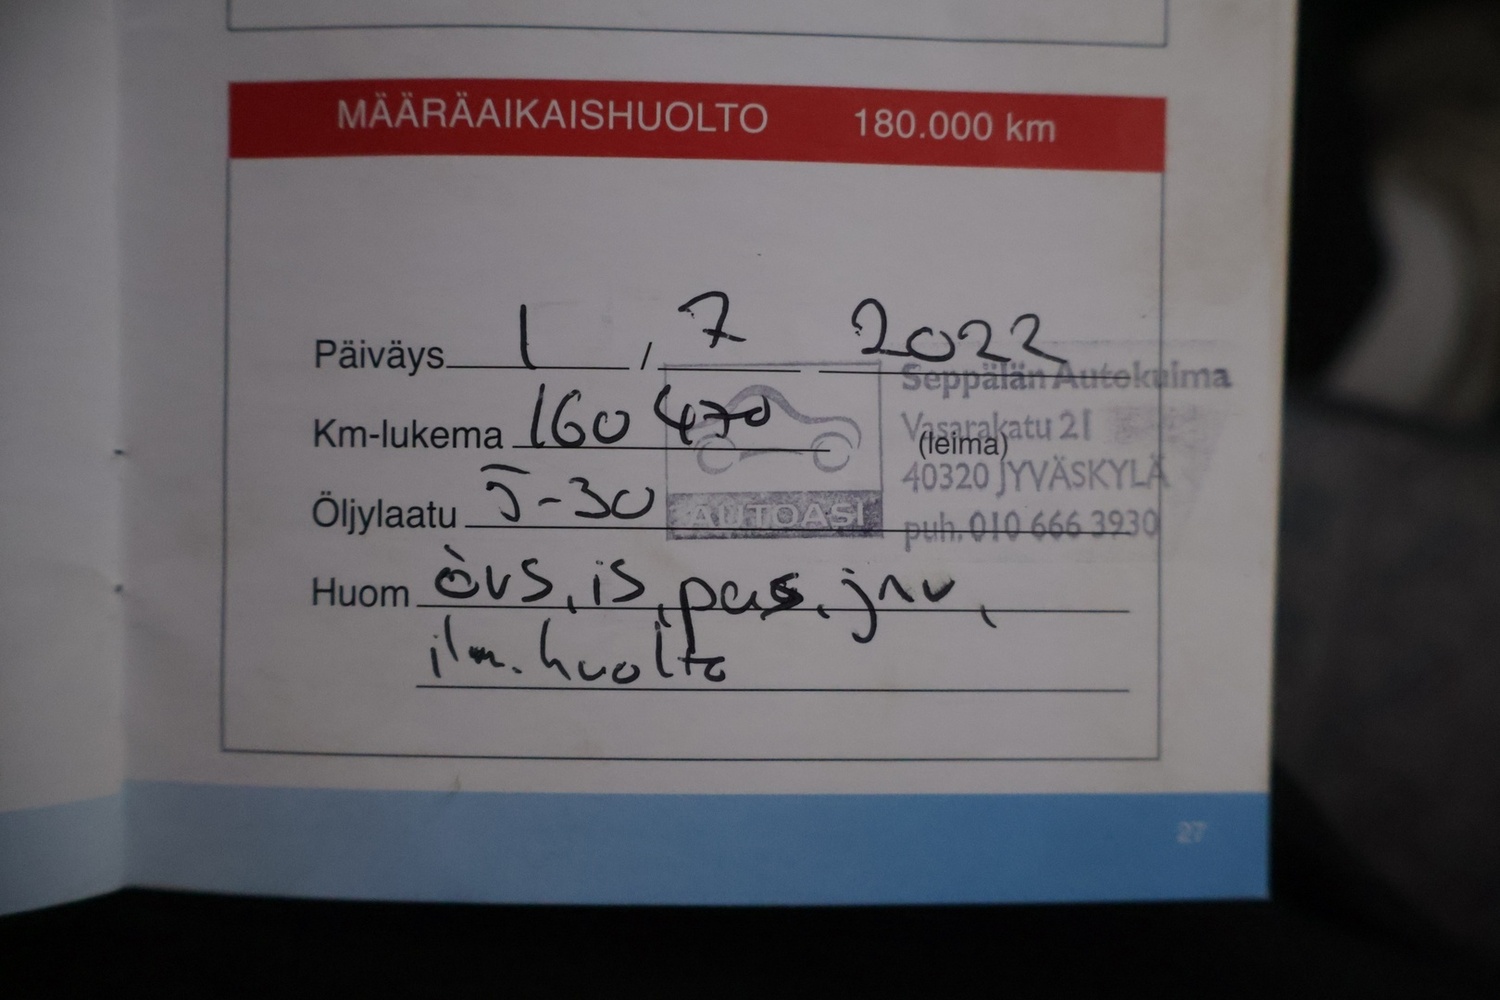 MÄÄRÄAIKAISHUOLTO 180.000 km
Päiväys 1 / 7 2022
Km-lukema 160 470
(leima)
Öljylaatu 5-30
Huom övs, is, pas, jnv,
ilm. huolto
AUTOASI
Seppälän Autokulma
Vasarakatu 21
40320 JYVÄSKYLÄ
puh. 010 666 3930
27